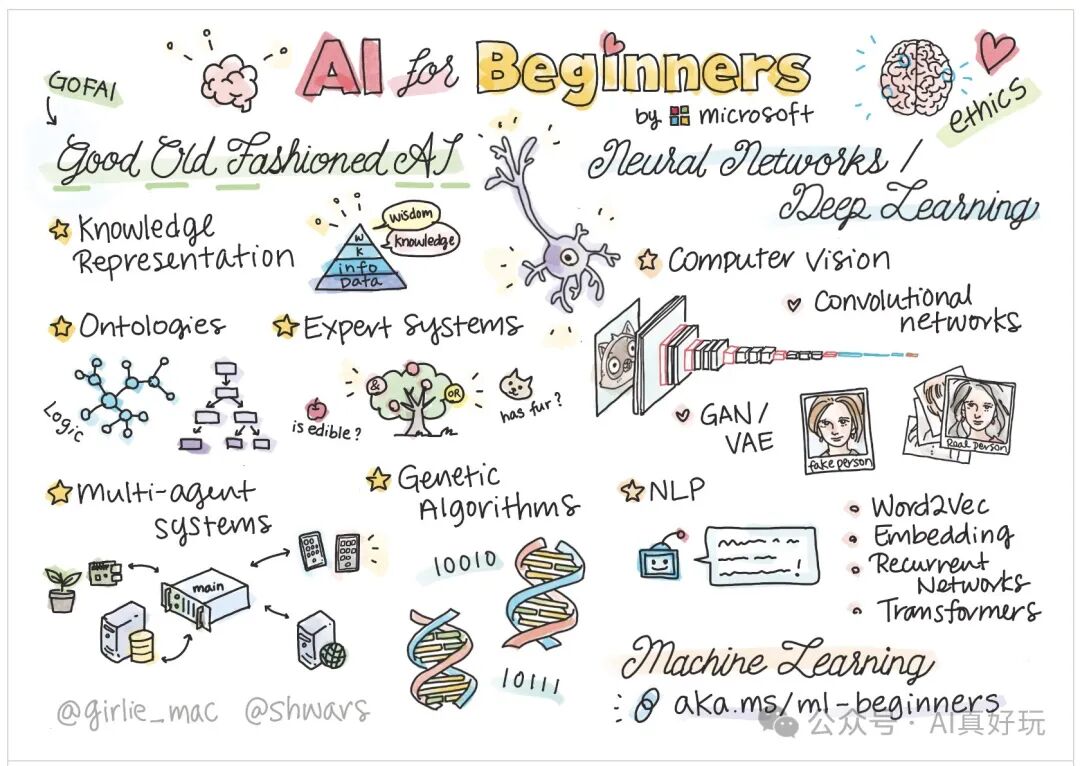 AI for Beginners
by microsoft
GOFAI
ethics
Good Old Fashioned AI
Knowledge
Representation
wisdom
knowledge
W
K
info
Data
Ontologies
Logic
Expert Systems
&
OR
is edible?
has fur?
Multi-agent
systems
main
Genetic
Algorithms
10010
10111
Neural Networks /
Deep Learning
Computer Vision
Convolutional
networks
GAN /
VAE
fake person
Real person
NLP
!
Word2Vec
Embedding
Recurrent
Networks
Transformers
Machine Learning
aka.ms/ml-beginners
@girlie_mac @shwars
公众号 · AI真好玩